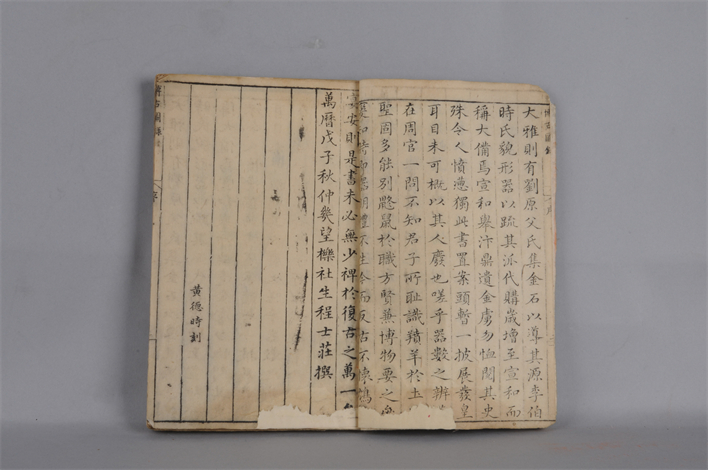 大雅則有劉原父氏集金石以導其源李伯
時氏貌形器以疏其派代購歲增至宣和而
稱大備焉宣和舉汴鼎遺金虜勿恤閱其史
殊令人憤懣獨此書置案頭暫一披展發皇
耳目未可概以其人廢也嗟乎器數之辨
在周官一問不知君子所恥識羵羊於土
聖固多能別鼮鼠於職方賢兼博物要之
而反古不
宴安則是書未必無少裨於復古之萬一
萬曆戊子秋仲幾望櫟社生程士莊撰
黃德時刻
博古圖錄
序